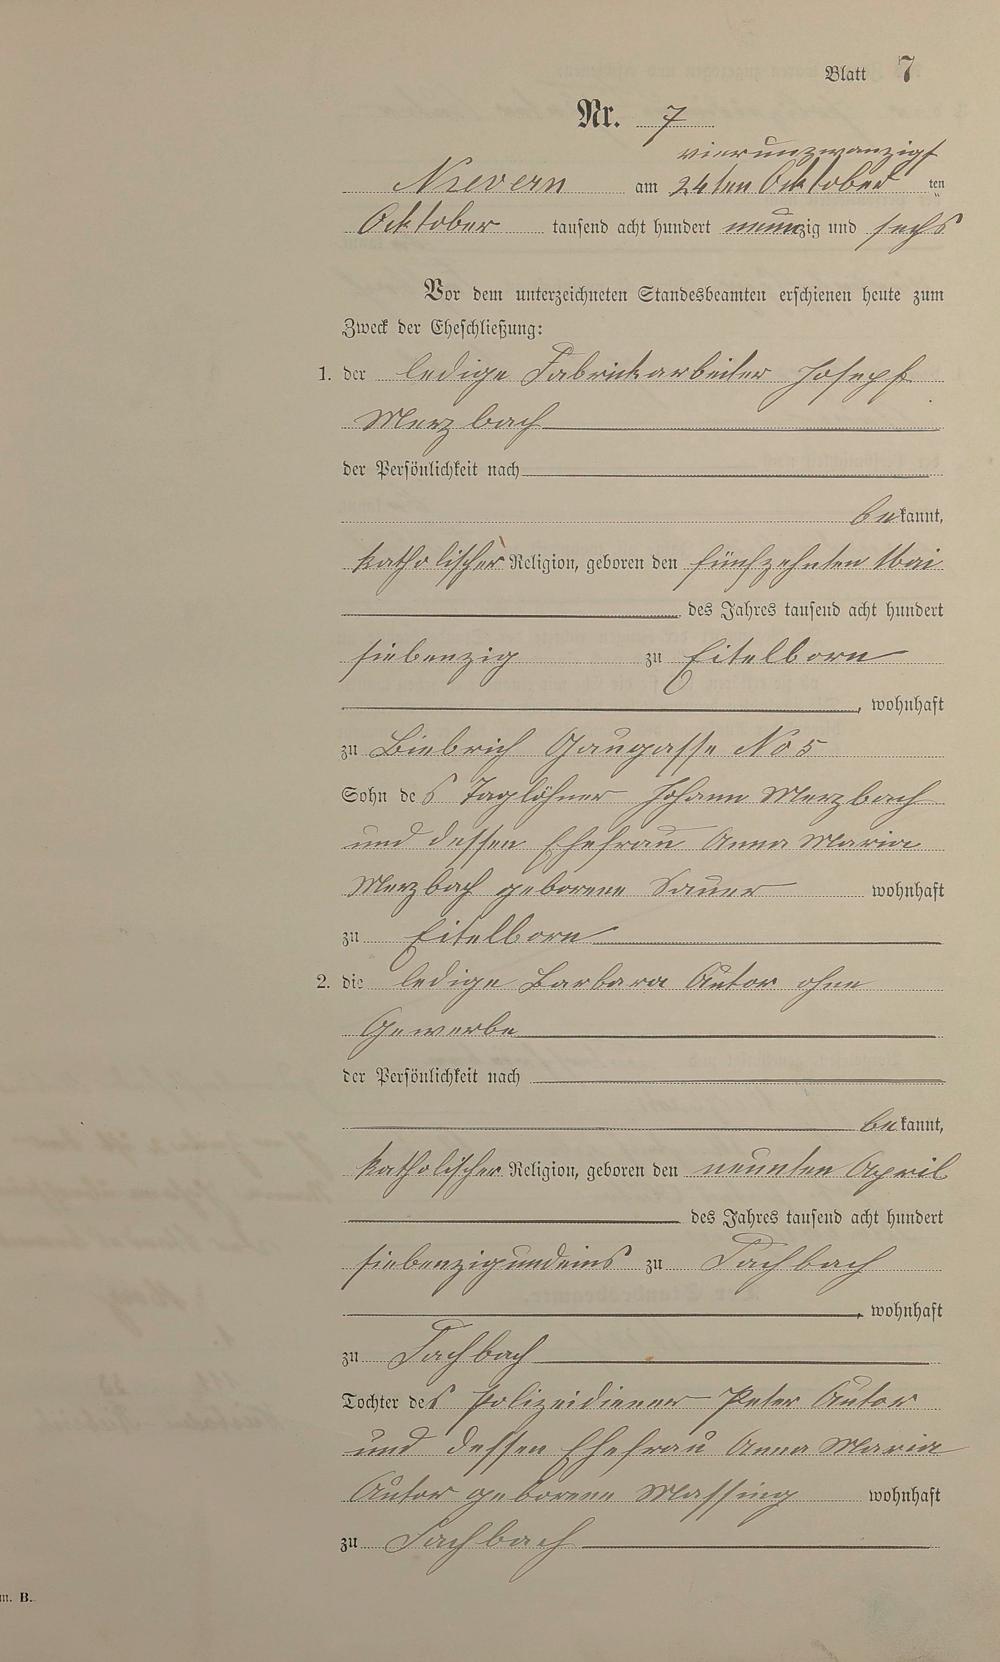 Blatt 7
Nr. 7
vierunzwanzigst
Nievern am 24ten Ocktober ten
Ocktober tausend acht hundert neunzig und sechs
Vor dem unterzeichneten Standesbeamten erschienen heute zum
Zweck der Eheschließung:
1. der ledige Fabrickarbeiter Joseph
Merzbach
der Persönlichkeit nach
bekannt,
katholischer Religion, geboren den fünfzehnten Mai
des Jahres tausend acht hundert
siebenzig zu Eitelborn
, wohnhaft
zu Biebrich Gaugasse No 5
Sohn des Taglöhner Johann Merzbach
und dessen Ehefrau Anna Maria
Merzbach geborene Sauer wohnhaft
zu Eitelborn
2. die ledige Barbara Autor ohne
Gewerbe
der Persönlichkeit nach
bekannt,
katholischer Religion, geboren den neunten April
des Jahres tausend acht hundert
siebenzigundeins zu Fachbach
, wohnhaft
zu Fachbach
Tochter des Polizeidiener Peter Autor
und dessen Ehefrau Anna Maria
Autor geborene Massing wohnhaft
zu Fachbach
m. B.